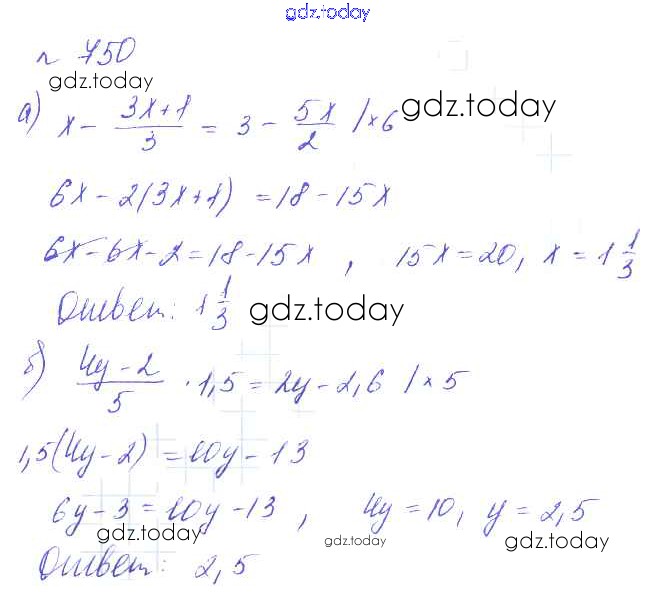 gdz.today
n 750
gdz.today
а) x - (3x+1)/3 = 3 - 5x/2 /×6 gdz.today
6x - 2(3x+1) = 18 - 15x
6x - 6x - 2 = 18 - 15x , 15x = 20, x = 1 1/3
Ответ: 1 1/3 gdz.today
б) (4y-2)/5 · 1,5 = 2y - 2,6 /×5
1,5(4y-2) = 10y - 13
6y - 3 = 10y - 13 , 4y = 10, y = 2,5
gdz.today gdz.today gdz.today
Ответ: 2,5